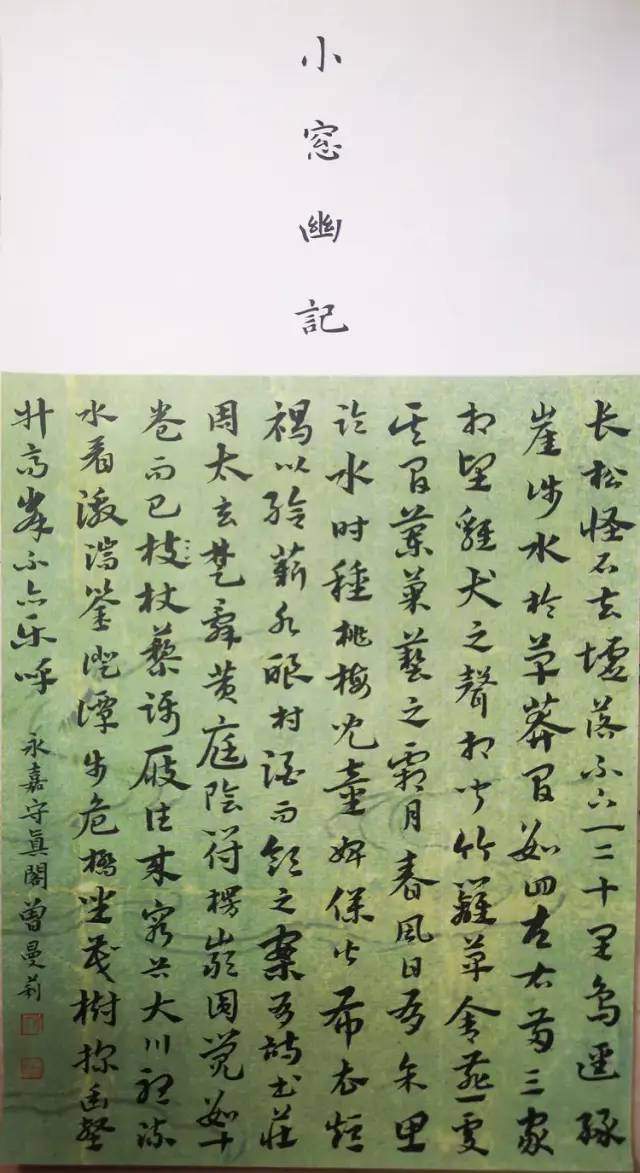 小窓幽記
长松怪石去墟落不下一二十里鸟迳缘
崖涉水於草莽間数四左右两三家
相望雞犬之聲相闻竹籬草舍燕處
其間蘭菊藝之霜月春風日有余思
临水时種桃梅児童婢僕皆布衣短
褐以給薪水酿村酒而飲之案有詩書莊
周太玄楚辞黄庭陰符楞嚴圆覺数十
卷而已枝杖藜蹑屐往来穷谷大川聴流
水看激湍鉴澄潭步危橋坐茂樹探幽壑
升高峯不亦乐呼
永嘉守真閣曾曼莉